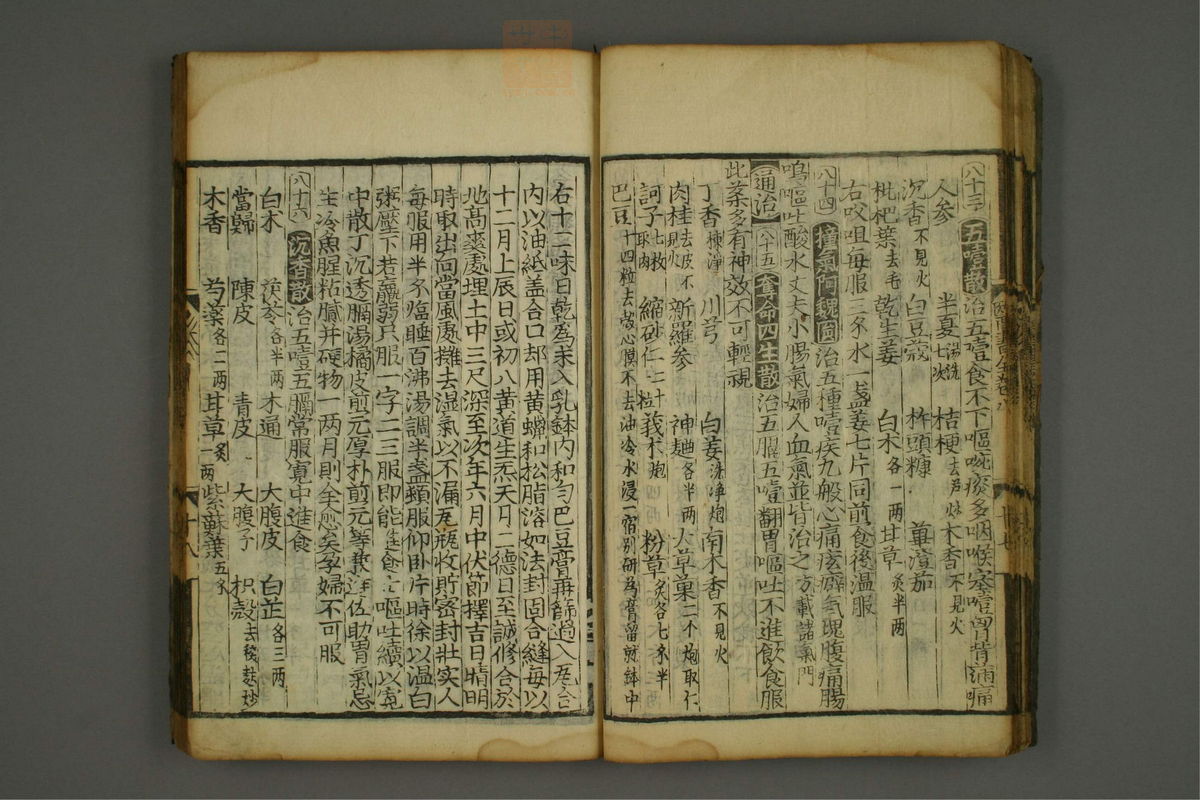 八十三 五噎散 治五噎食不下嘔啘痰多咽喉塞噎胃背滿痛
人參 半夏湯洗七次 桔梗去芦炒 木香不見火
沉香不見火 白豆蔻 杵頭糠 蓽澄茄
枇杷葉去毛 乾生姜 白朮各一两 甘草炙半两
右㕮咀每服三錢水一盞姜七片同煎食後溫服
八十四 撞氣阿魏圓 治五種噎疾九般心痛痃癖氣塊腹痛腸
鳴嘔吐酸水丈夫小腸氣婦人血氣並皆治之方載諸氣門
通治 八十五 奪命四生散 治五膈五噎翻胃嘔吐不進飲食服
此藥多有神效不可輕視
丁香揀淨 川芎 白姜洗净炮 南木香不見火
肉桂去皮不見火 新羅參 神麯各半两 大草菓二个炮取仁
訶子七枚取肉 縮砂仁二十粒 莪朮炮 粉草炙各七錢半
巴豆十四粒去殼心膜不去油冷水浸一宿别研為膏留於鉢中
右十二味日乾為末入乳鉢内和勻巴豆膏再篩過入瓦合
内以油紙盖合口却用黄蠟和松脂溶如法封固合縫每以
十二月上辰日或初八黄道生炁天月二德日至誠修合於
地高爽處埋土中三尺深至次年六月中伏節擇吉日晴明
時取出向當風處攤去湿氣以不漏瓦瓶收貯密封壯实人
每服用半錢臨睡百沸湯調半盞頓服仰卧片時徐以溫白
粥壓下若羸弱只服一字二三服即能進食止嘔吐續以寬
中散丁沉透膈湯橘皮煎元厚朴煎元等藥連佐助胃氣忌
生冷魚腥粘膩并硬物一两月則全愈矣孕婦不可服
八十六 沉香散 治五噎五膈常服寬中進食
白朮 茯苓各半两 木通 大腹皮 白芷各三两
當歸 陳皮 青皮 大腹子 枳殼去穰麩炒
木香 芍藥各二两 甘草一两炙 紫蘇葉五錢